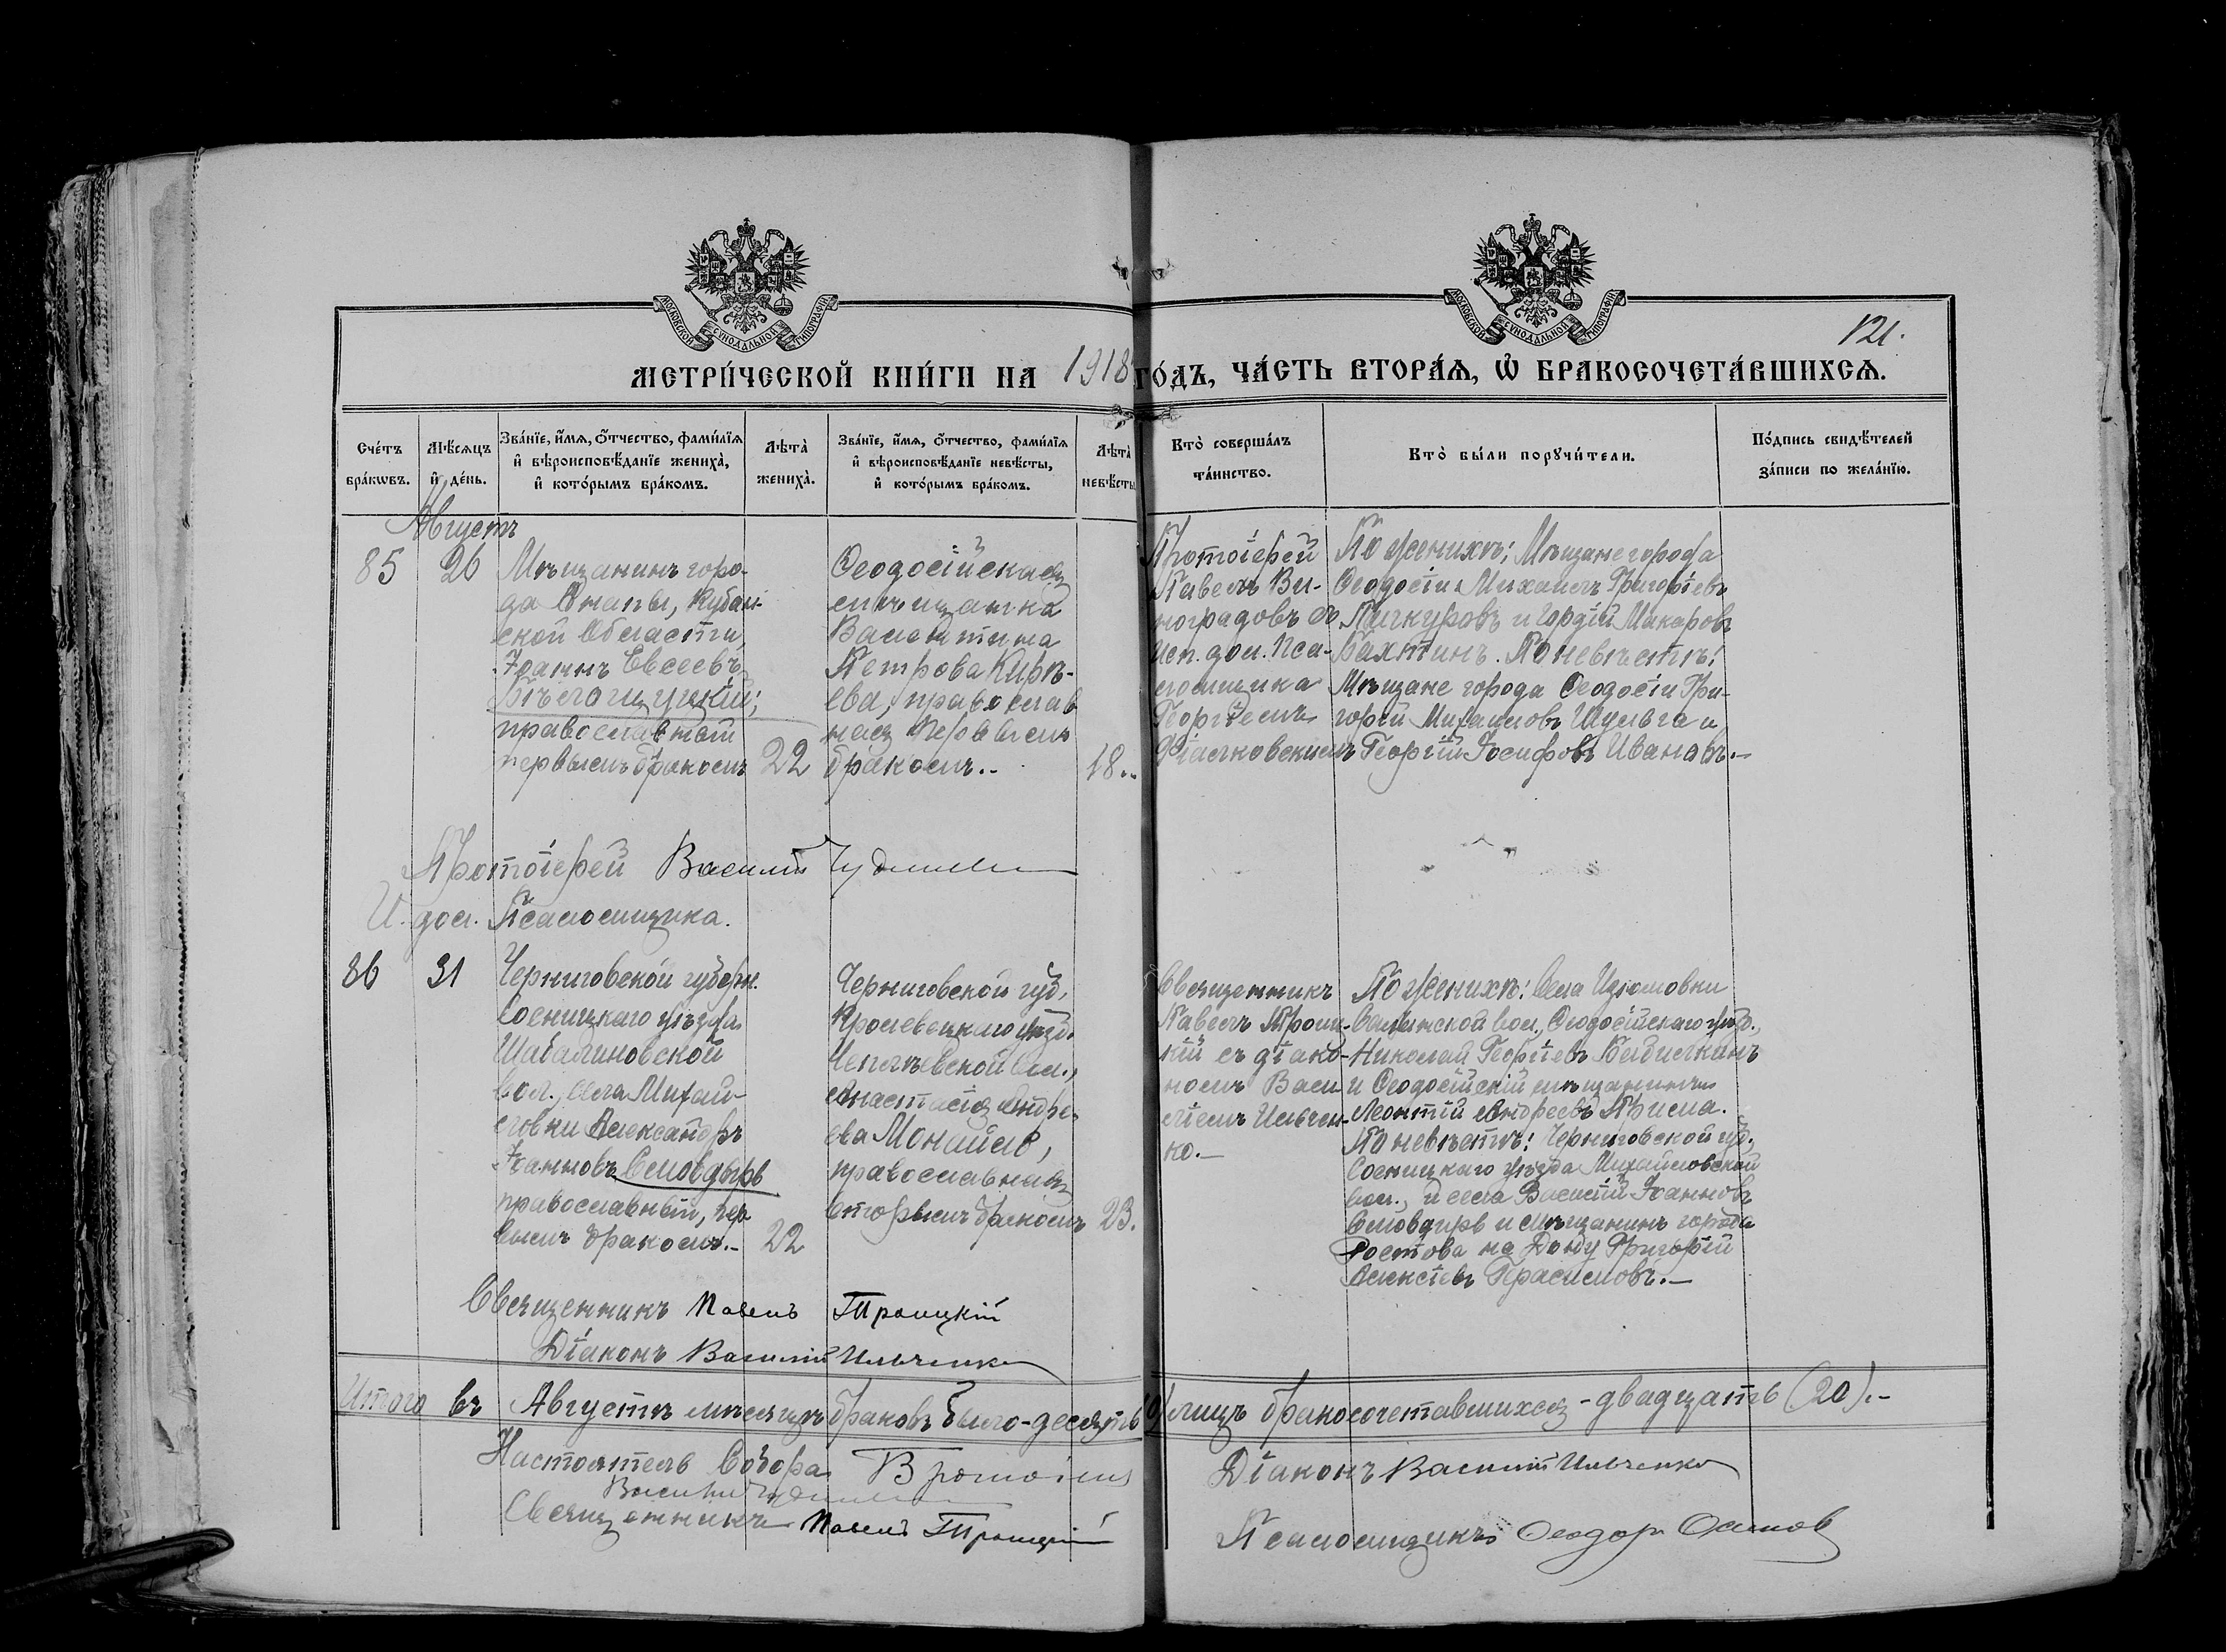 МОСКОВСКОЙ СѴНОДАЛЬНОЙ ТИПОГРАФІИ
МОСКОВСКОЙ СѴНОДАЛЬНОЙ ТИПОГРАФІИ
121.
МЕТРИ́ЧЕСКОЙ КНИ́ГИ НА 1918 ГО́ДЪ, ЧА́СТЬ ВТОРА́Ѧ, Ѡ҆ БРАКОСОЧЕТА́ВШИХСѦ.
Сче́тъ бра́кѡвъ.
Мѣ́сѧцъ и҆ де́нь.
Зва́нїе, и҆́мѧ, ѻ҆́тчество, фами́лїѧ и҆ вѣроисповѣ́данїе жениха̀, и҆ кото́рымъ бра́комъ.
Лѣта̀ жениха̀.
Зва́нїе, и҆́мѧ, ѻ҆́тчество, фами́лїѧ и҆ вѣроисповѣ́данїе невѣ́сты, и҆ кото́рымъ бра́комъ.
Лѣта̀ невѣ́сты
Кто̀ соверша́лъ та́инство.
Кто̀ бы́ли порꙋчи́тели.
По́дпись свидѣ́телей за́писи по жела́нїю.
Августъ
85
26
Мѣщанинъ горо-
да Анапы, Кубан-
ской Области,
Іоаннъ Евсеевъ
Бѣлогуцкій;
православный
первымъ бракомъ
22
Ѳеодосійская
мѣщанка
Валентина
Петрова Кирѣ-
ева, православ
ная первымъ
бракомъ.-
18..
Протоіерей
Павелъ Ви-
ноградовъ съ
исп. дол. Пса-
ломщика
Георгіемъ
Фіалковскимъ
По женихѣ: Мѣщане города
Ѳеодосіи Михаилъ Григорьевъ
Пичкуровъ и Гордій Макаровъ
Бахтинъ. По невѣстѣ:
Мѣщане города Ѳеодосіи Гри-
горій Михаиловъ Шульга и
Георгій Іосифовъ Ивановъ.-
Протоіерей Василій
И. дол. Псаломщика.
86
31
Черниговской губерн.
Сосницкаго уѣзда
Шабалиновской
вол., села Михай-
ловки Александръ
Іоанновъ Самовдыръ
православный, пер
вымъ бракомъ.-
22
Черниговской губ,
Кролевецкаго уѣзд.
Чеплѣевской вол.,
Анастасія Андре-
ева Монайло,
православная
вторымъ бракомъ
23.
Священникъ
Павелъ Троиц-
кій съ діако-
номъ Васи
ліемъ Ильчен-
ко.-
По женихѣ: Села Изюмовки
Салынской вол., Ѳеодосійскаго уѣзд.,
Николай Георгіевъ
и Ѳеодосійскій мѣщанинъ
Леонтій Андреевъ Прима.
По невѣстѣ: Черниговской губ.
Сосницкаго уѣзда Михайловской
вол., и села Василій Іоанновъ
Самовдыръ и мѣщанинъ города
Ростова на Дону Григорій
Алексіевъ Герасимовъ.-
Священникъ Павелъ Троицкій
Діаконъ Василій Ильченко
Итого въ Августѣ мѣсяцѣ браковъ было-десять лицъ бракосочетавшихся-двадцать (20).-
Настоятель Собора Протоіерей
Василій
Священникъ Павелъ Троицкій
Діаконъ Василій Ильченко
Псаломщикъ Ѳеодоръ Осипов